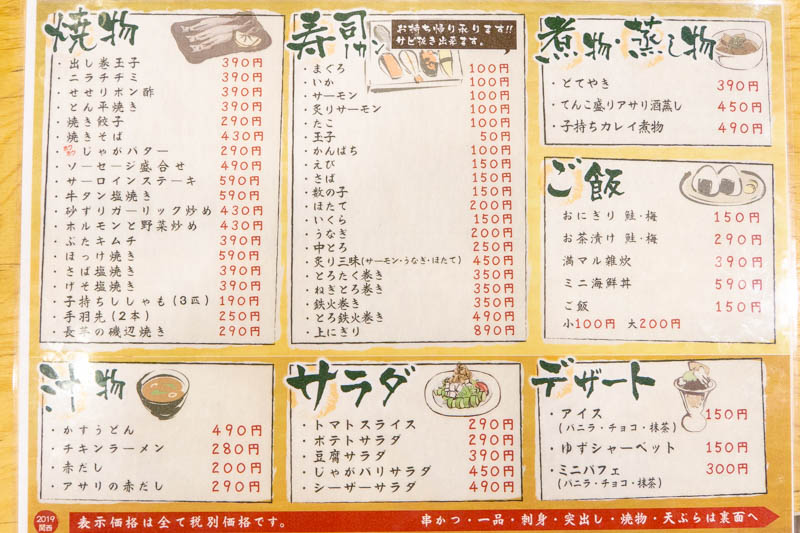 焼物
・出し巻玉子 390円
・ニラチヂミ 390円
・せせりポン酢 390円
・とん平焼き 390円
・焼き餃子 290円
・焼きそば 430円
・じゃがバター 290円
・ソーセージ盛合せ 490円
・サーロインステーキ 590円
・牛タン塩焼き 590円
・砂ずりガーリック炒め 430円
・ホルモンと野菜炒め 430円
・ぶたキムチ 390円
・ほっけ焼き 590円
・さば塩焼き 390円
・げそ塩焼き 390円
・子持ちししゃも(3匹) 190円
・手羽先(2本) 250円
・長芋の磯辺焼き 290円
寿司 一カン
お持ち帰り承ります!!
サビ抜き出来ます。
・まぐろ 100円
・いか 100円
・サーモン 100円
・炙りサーモン 100円
・たこ 100円
・玉子 50円
・かんぱち 100円
・えび 150円
・さば 150円
・数の子 150円
・ほたて 200円
・いくら 150円
・うなぎ 200円
・中とろ 250円
・炙り三昧(サーモン・うなぎ・ほたて) 450円
・とろたく巻き 350円
・ねぎとろ巻き 350円
・鉄火巻き 350円
・とろ鉄火巻き 490円
・上にぎり 890円
煮物 蒸し物
・どてやき 390円
・てんこ盛りアサリ酒蒸し 450円
・子持ちカレイ煮物 490円
ご飯
おにぎり 鮭・梅 150円
お茶漬け 鮭・梅 290円
満マル雑炊 390円
ミニ海鮮丼 590円
ご飯 150円
小100円 大200円
汁物
・かすうどん 490円
・チキンラーメン 280円
・赤だし 200円
・アサリの赤だし 290円
サラダ
・トマトスライス 290円
・ポテトサラダ 290円
・豆腐サラダ 390円
・じゃがバリサラダ 450円
・シーザーサラダ 490円
デザート
・アイス 150円
(バニラ・チョコ・抹茶)
・ゆずシャーベット 150円
・ミニパフェ 300円
(バニラ・チョコ・抹茶)
2019
関西
表示価格は全て税別価格です。
串かつ・一品・刺身・突出し・焼物・天ぷらは裏面へ